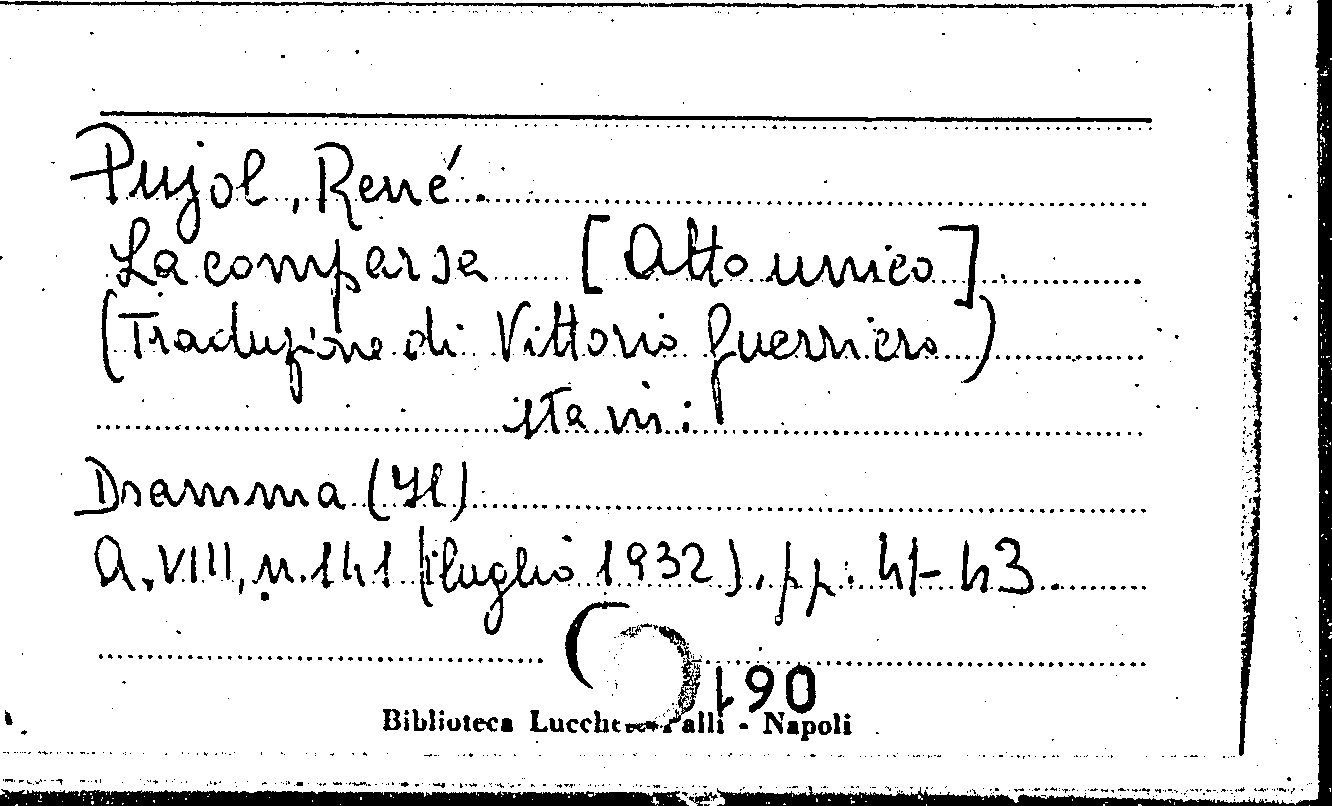 Pujol, René.
La comparsa [Atto unico]
(Traduzione di Vittorio Guerriero)
sta in:
Dramma (Il)
A. VIII, n. 141 (1 luglio 1932), pp. 41-43.
190
Biblioteca Lucchesi Palli - Napoli